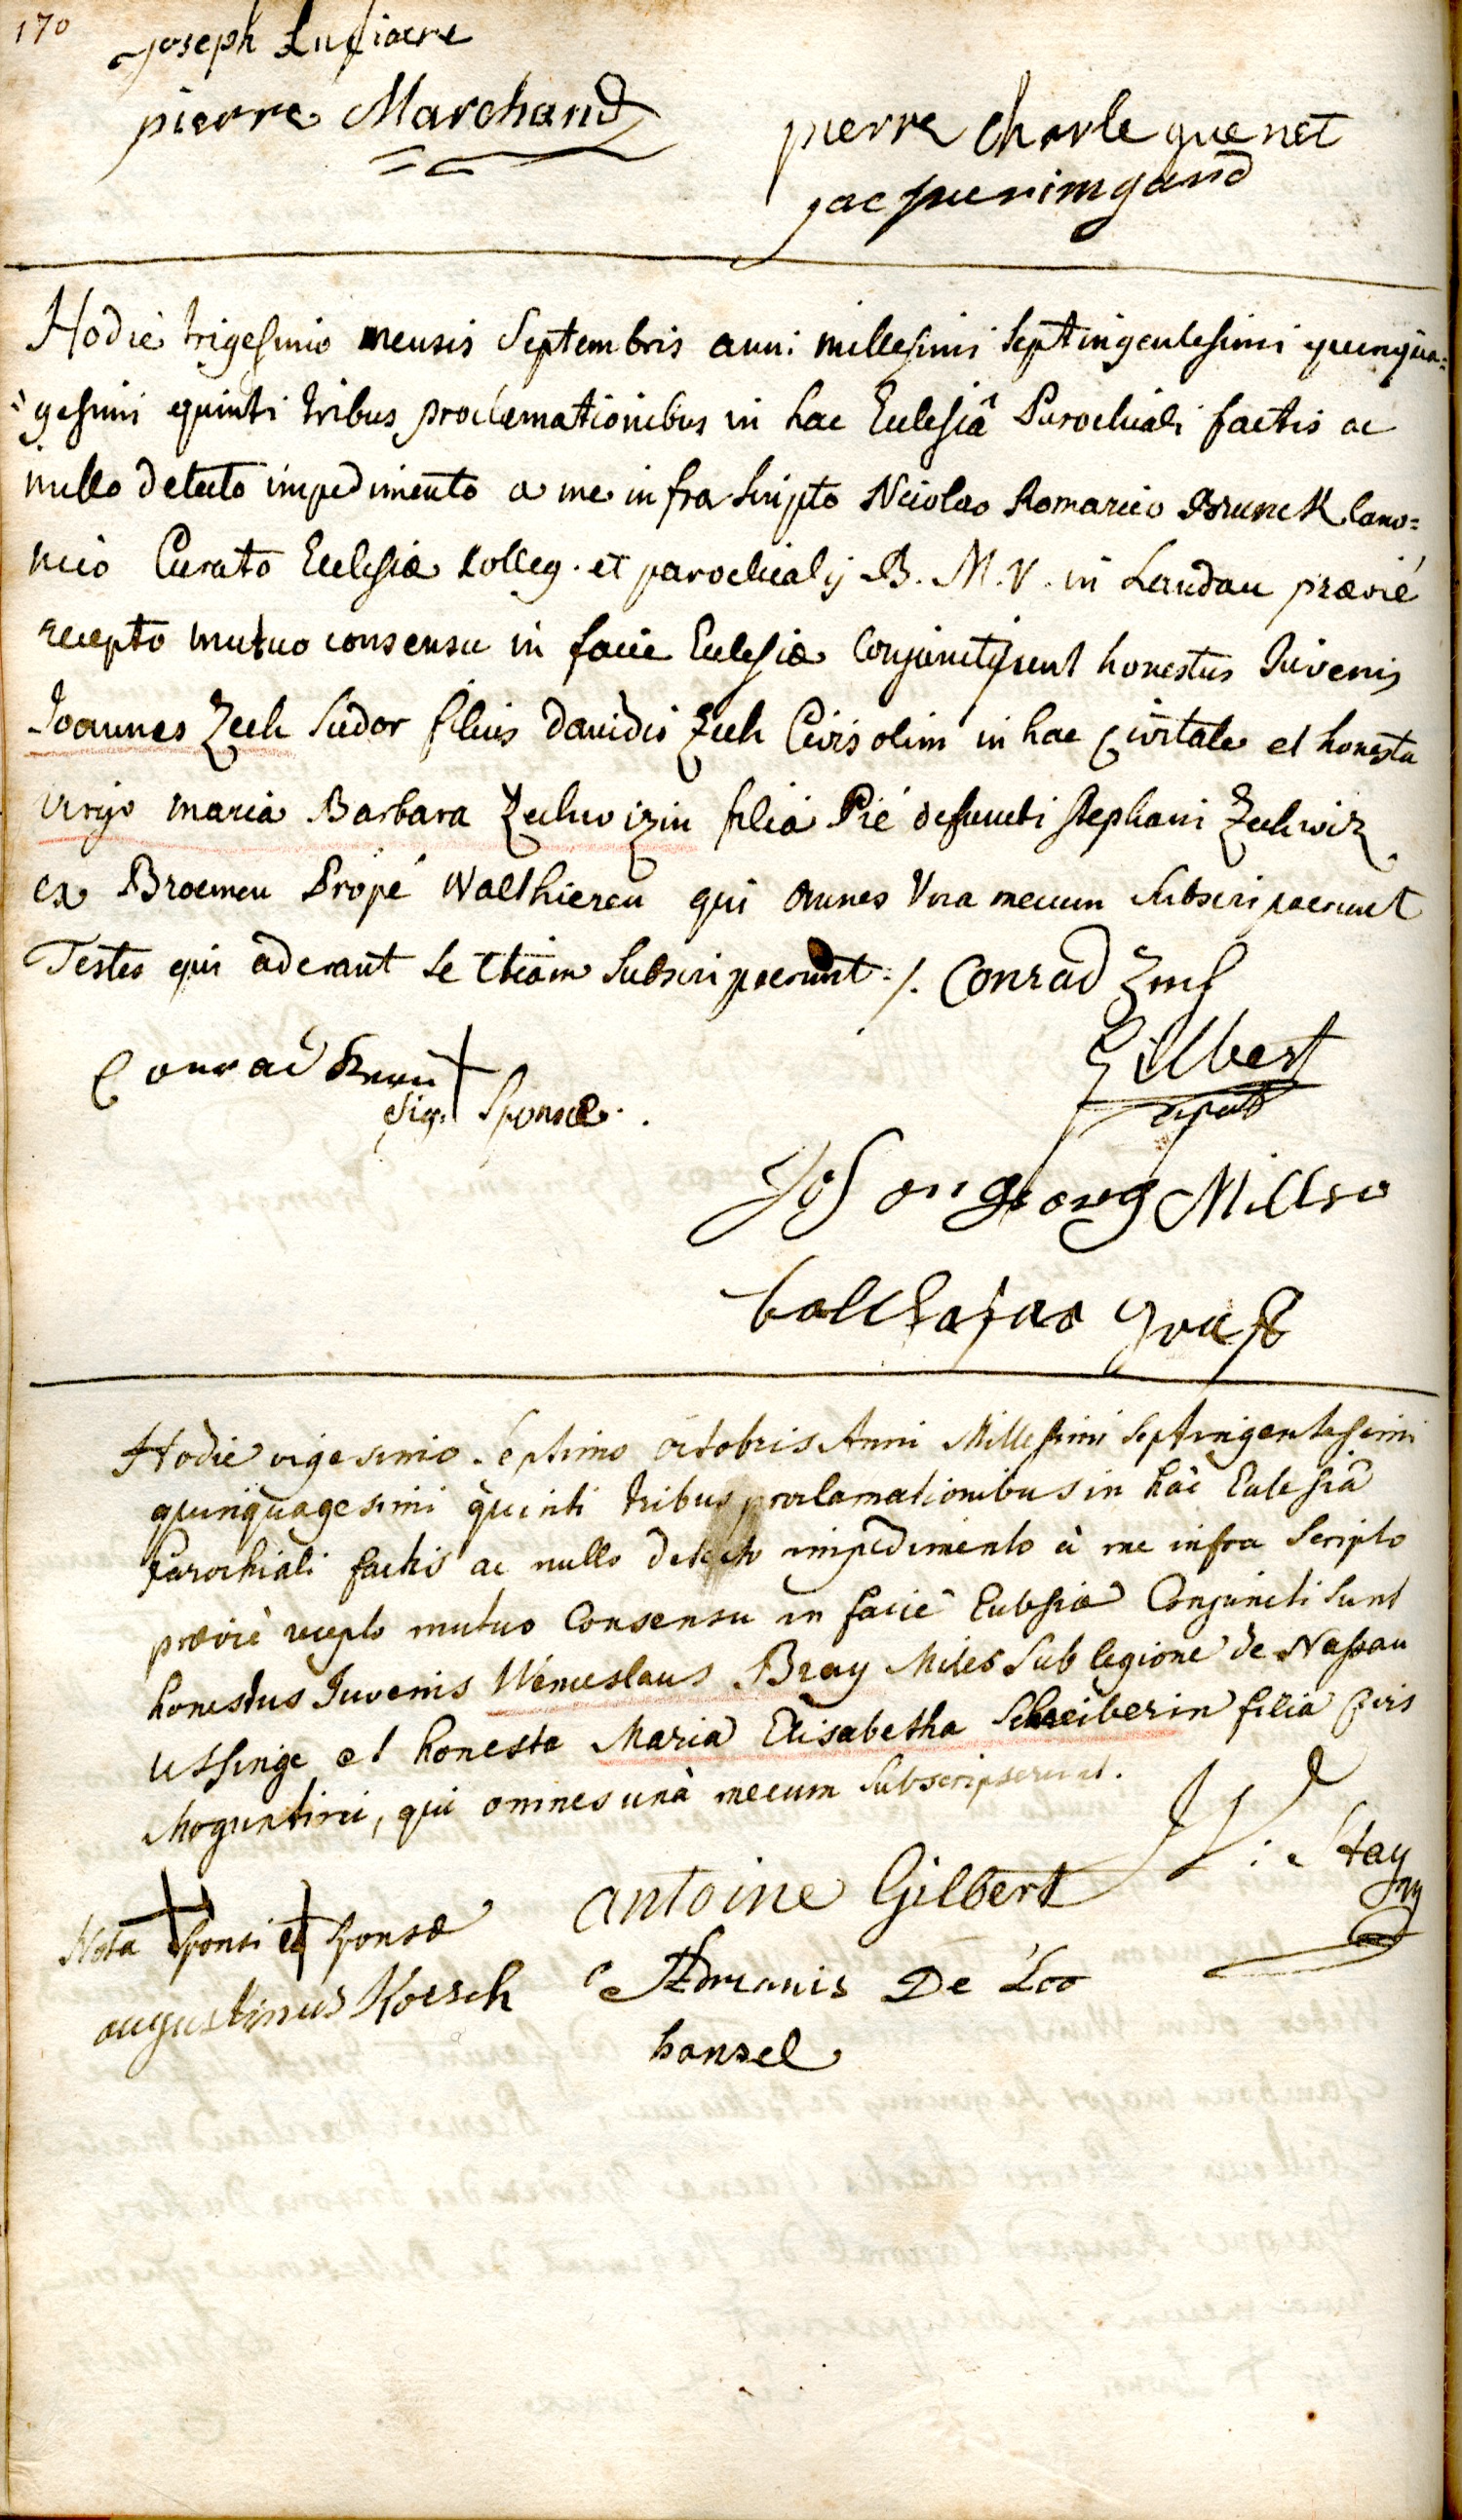 170
Joseph
pierre Marchand
pierre charle quenet
Hodie trigesimo mensis Septembris anni millesimi septingentesimi quinqua=
gesimi quinti tribus proclamationibus in hac Ecclesiâ Parochiali factis ac
nullo detecto impedimento a me infra scripto Nicolao Romarico Brunck Cano=
nico Curato Ecclesiæ Colleg. et parochialis B. M. V. in Landau prævié
recepto mutuo consensu in facie Ecclesiæ Conjuncti sunt honestus Iuvenis
Joannes Zech Sudor filius Davidis Zech Civis olim in hac Civitate et honesta
virgo maria Barbara Zechwizin filia Pié defuncti stephani Zechwiz
ex Broemen Propé Walthieren qui omnes Una mecum Subscripserunt
Testes qui aderant se etiam Subscripserunt ./. Conrad
Conrad
Sig. Sponsæ.
Gilbert
georg Miller
balthasar graf
Hodie vigesimo septimo octobris Anni Millesimi Septingentesimi
quinquagesimi quinti tribus proclamationibus in hâc Ecclesiâ
Parochiali factis ac nullo detecto impedimento à me infra Scripto
prævié recepto mutuo Consensu in facie Ecclesiæ Conjuncti Sunt
honestus Juvenis Wenceslaus Bray Miles Sub legione de Nassau
Ussinge et honesta Maria Elisabetha Schreiberin filia civis
Moguntini, qui omnes unà mecum Subscripserunt.
Nota Sponsi et Sponsæ
antoine Gilbert
augustinus Koesch
De Loo
hansel